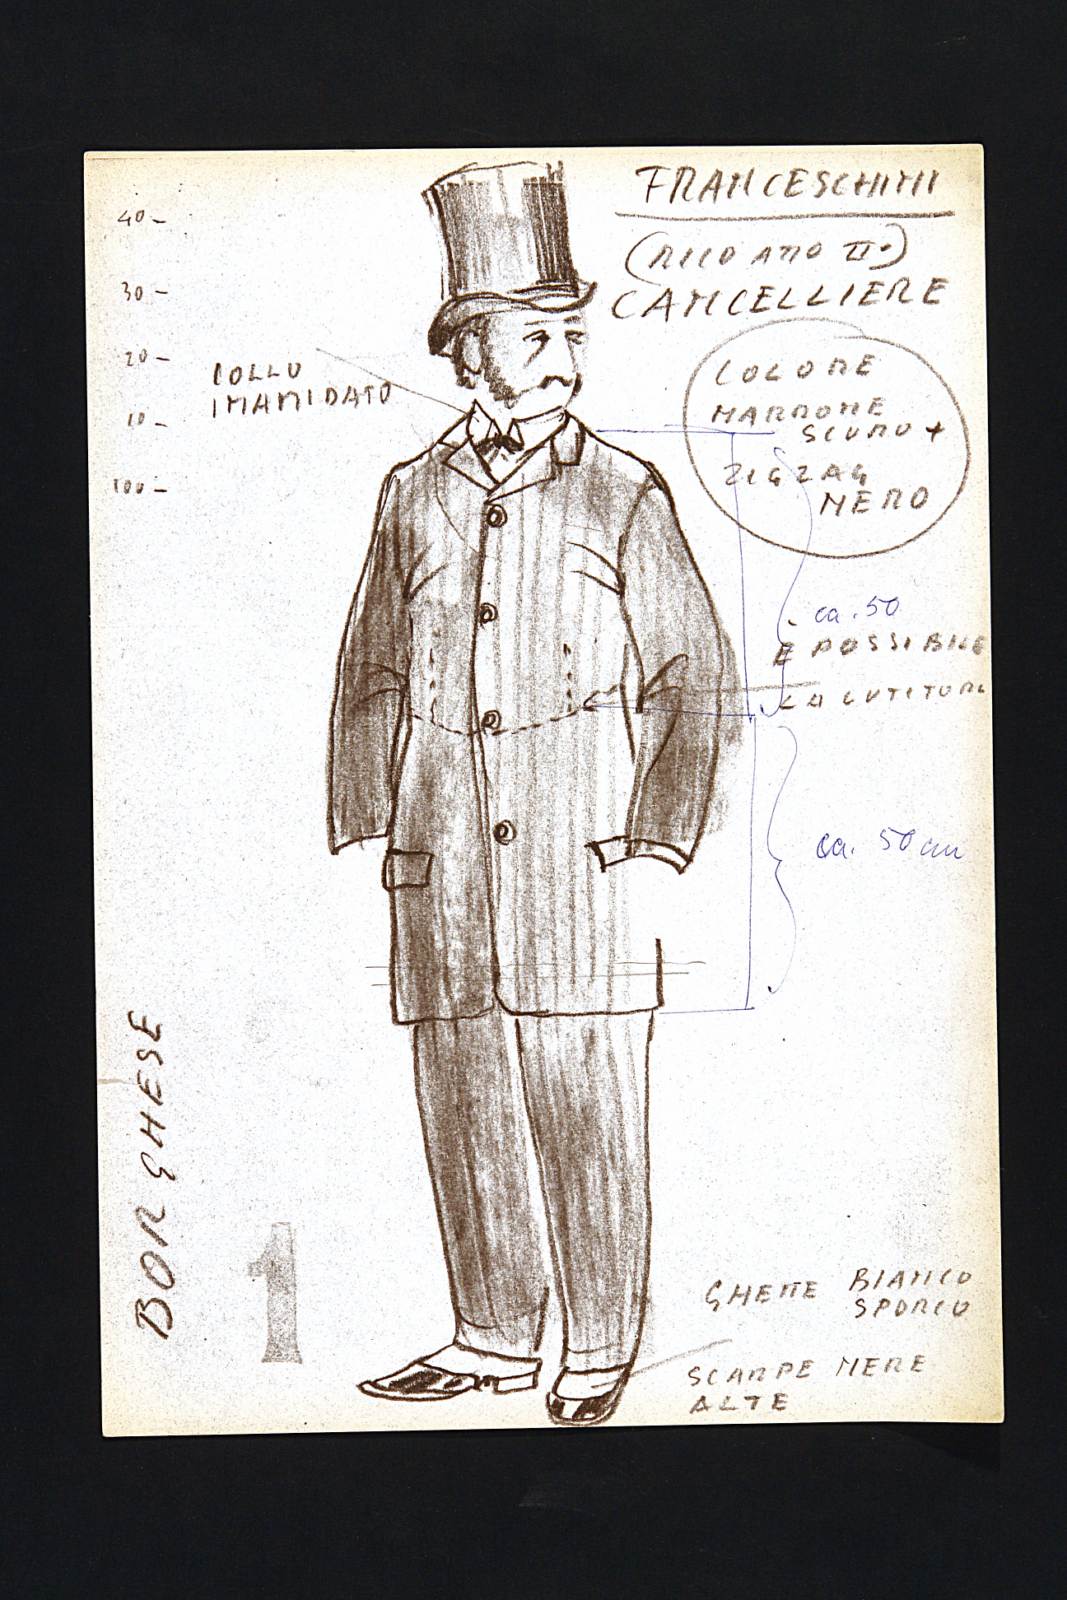 FRANCESCHINI
(RICO ATTO II°)
CANCELLIERE
40 -
30 -
20 -
10 -
100 -
COLLO
INAMIDATO
COLORE
MARRONE
SCURO +
ZIGZAG
NERO
ca. 50
E POSSIBILE
LA
ca. 50 cm
BORGHESE
1
GHETTE BIANCO
SPORCO
SCARPE NERE
ALTE